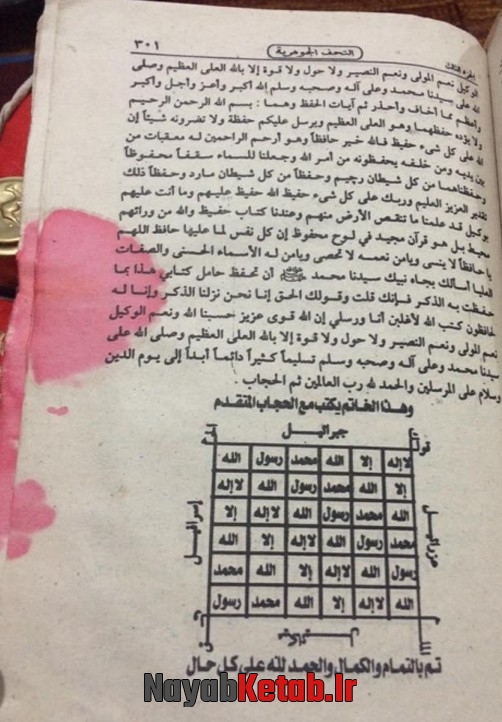 الجزء الثالث
التحف الجوهرية
٣٠١
الوكيل نعم المولى ونعم النصير ولا حول ولا قوة إلا بالله العلى العظيم وصلى
الله على سيدنا محمد وعلى آله وصحبه وسلم الله أكبر وأعز وأجل وأكبر
وأعظم مما أخاف وأحذر ثم آيات الحفظ وهما : بسم الله الرحمن الرحيم
ولا يؤده حفظهما وهو العلى العظيم ويرسل عليكم حفظة ولا تضرونه شيئاً إن
الله على كل شىء حفيظ فالله خير حافظاً وهو أرحم الراحمين له معقبات من
بين يديه ومن خلفه يحفظونه من أمر الله وجعلنا للسماء سقفاً محفوظاً
وحفظناهما من كل شيطان رجيم وحفظاً من كل شيطان مارد وحفظاً ذلك
تقدير العزيز العليم وربك على كل شىء حفيظ الله حفيظ عليهم وما أنت عليهم
بوكيل قد علمنا ما تنقص الأرض منهم وعندنا كتاب حفيظ والله من ورائهم
محيط بل هو قرآن مجيد في لوح محفوظ إن كل نفس لما عليها حافظ اللهم
يا حافظاً لا ينسى ويامن نعمه لا تحصى ويامن له الأسماء الحسنى والصفات
العليا أسألك بجاه نبيك سيدنا محمد ﷺ أن تحفظ حامل كتابي هذا بما
حفظت به الذكر فإنك قلت وقولك الحق إنا نحن نزلنا الذكر وإنا له
لحافظون كتب الله لأغلبن أنا ورسلي إن الله قوى عزيز حسبنا الله ونعم الوكيل
نعم المولى ونعم النصير ولا حول ولا قوة إلا بالله العلى العظيم وصلى الله على
سيدنا محمد وعلى آله وصحبه وسلم تسليماً كثيراً دائماً أبداً إلى يوم الدين
وسلام على المرسلين والحمد لله رب العالمين ثم الحجاب .
وهذا الخاتم يكتب مع الحجاب المتقدم
جبرائيل
لا إله إلا الله محمد رسول الله
إلا الله محمد رسول الله لا إله
الله محمد رسول الله لا إله إلا
محمد رسول الله لا إله إلا الله
رسول الله لا إله إلا الله محمد
الله لا إله إلا الله محمد رسول
عزرائيل
إسرافيل
تم بالتمام والكمال والحمد لله على كل حال
NayabKetab.Ir